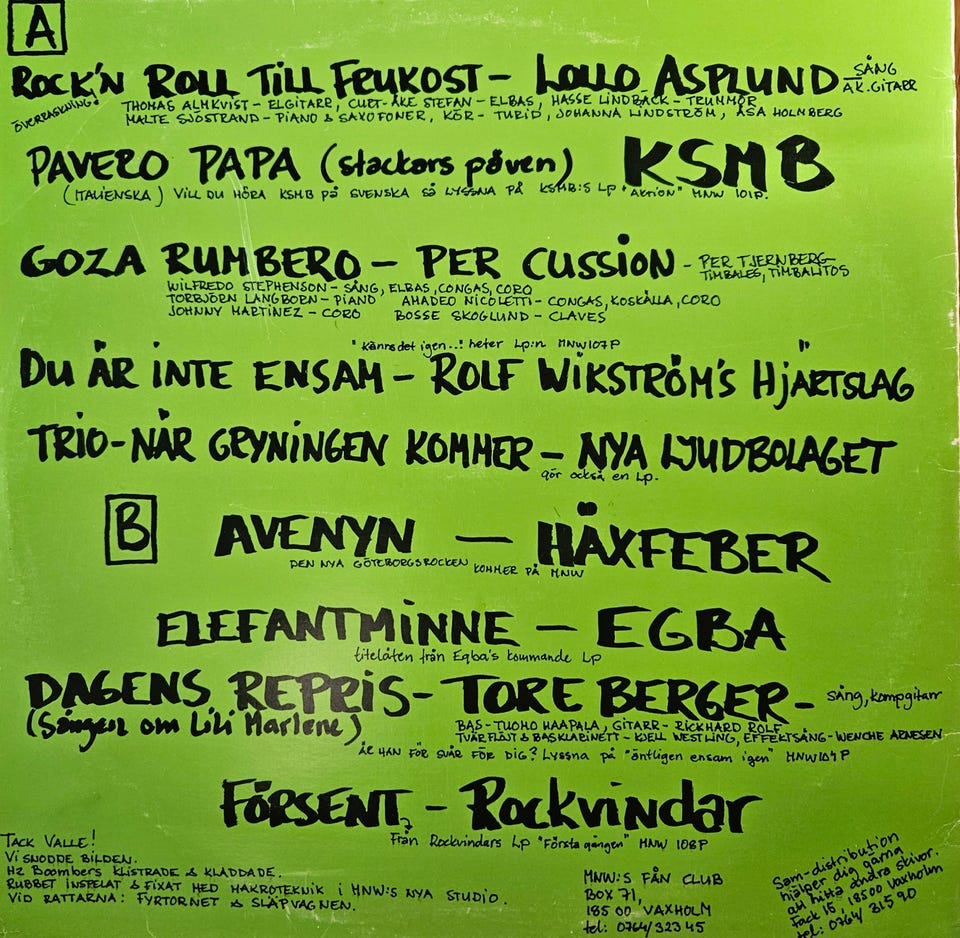 A
ROCK'N ROLL TILL FRUKOST – LOLLO ASPLUND – SÅNG
ÖVERRASKNING! AK.GITARR
THOMAS ALMKVIST – ELGITARR, CURT-ÅKE STEFAN – ELBAS, HASSE LINDBÄCK – TRUMMOR
MALTE SJÖSTRAND – PIANO & SAXOFONER, KÖR – TURID, JOHANNA LINDSTRÖM, ÅSA HOLMBERG
PAVERO PAPA (stackars påven) KSMB
(ITALIENSKA) VILL DU HÖRA KSMB PÅ SVENSKA SÅ LYSSNA PÅ KSMB:S LP "AKTION" MNW 101P.
GOZA RUMBERO – PER CUSSION – PER TJERNBERG–
TIMBALES, TIMBALITOS
WILFREDO STEPHENSON – SÅNG, ELBAS, CONGAS, CORO
TORBJÖRN LANGBORN – PIANO AMADEO NICOLETTI – CONGAS, KOSKÄLLA, CORO
JOHNNY MARTINEZ – CORO BOSSE SKOGLUND – CLAVES
"Känns det igen..! heter Lp:n MNW107P
DU ÄR INTE ENSAM – ROLF WIKSTRÖM'S HJÄRTSLAG
TRIO-NÄR GRYNINGEN KOMMER – NYA LJUDBOLAGET
gör också en Lp.
B AVENYN – HÄXFEBER
DEN NYA GÖTEBORGSROCKEN KOMMER PÅ MNW
ELEFANTMINNE – EGBA
titellåten från Egba's kommande Lp
DAGENS REPRIS – TORE BERGER – sång, kompgitarr
(Sången om Lili Marlene) BAS – TUOMO HAAPALA, GITARR – RICKHARD ROLF
TVÄRFLÖJT & BASKLARINETT – KJELL WESTLING, EFFEKTSÅNG – WENCHE ARNESEN
ÄR HAN FÖR SVÅR FÖR DIG? Lyssna på "äntligen ensam igen" MNW104P
FÖRSENT – Rockvindar
Från Rockvindars Lp "Första gången" MNW 108P
TACK VALLE!
VI SNODDE BILDEN.
HZ BOOMBERS KLISTRADE & KLADDADE.
RUBBET INSPELAT & FIXAT MED MAKROTEKNIK I MNW:S NYA STUDIO.
VID RATTARNA: FYRTORNET & SLÄPVAGNEN.
MNW:S FÅN CLUB
BOX 71,
185 00 VAXHOLM
tel: 0764/323 45
Sam-distribution
hjälper dig gärna
att hitta andra skivor.
Fack 15, 18500 Vaxholm
tel: 0764/ 315 90